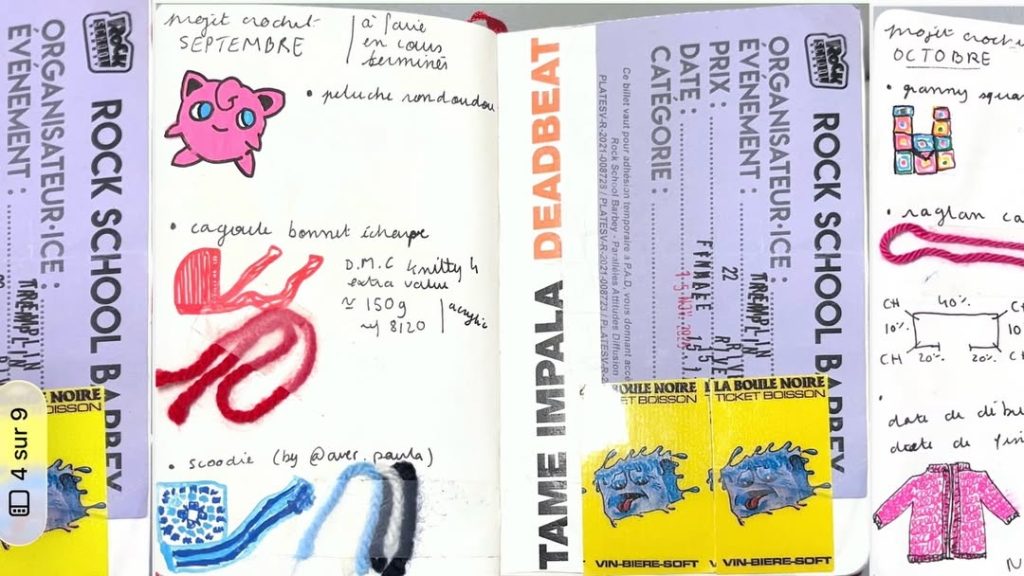 Rock
SCHOOL
ROCK SCHOOL BARBEY
ORGANISATEUR·ICE :
ÉVÉNEMENT :
TREMPLIN
LA BOULE NOIRE
TICKET BOISSON
4 sur 9
projet crochet
SEPTEMBRE
à faire
en cours
terminés
• peluche rondoudou
• cagoule bonnet écharpe
D.M.C knitty 4
extra value
≃ 150g
~ 8120
acrylic
• scoodie (by @aver.paula)
TAME IMPALA DEADBEAT
Rock
SCHOOL
ROCK SCHOOL BARBEY
ORGANISATEUR·ICE :
ÉVÉNEMENT :
TREMPLIN
PRIX :
22
DATE :
CATÉGORIE :
Ce billet vaut pour adhésion temporaire à P.A.D, vous donnant accès
Rock School Barbey - Parallèles Attitudes Diffusion
LA BOULE NOIRE
TICKET BOISSON
VIN-BIERE-SOFT
LA BOULE NOIRE
TICKET BOISSON
VIN-BIERE-SOFT
projet croche
OCTOBRE
• granny squar
• raglan ca
CH
40%
CH
10%
10
CH
20%
20%
CH
date de débu
date de fin